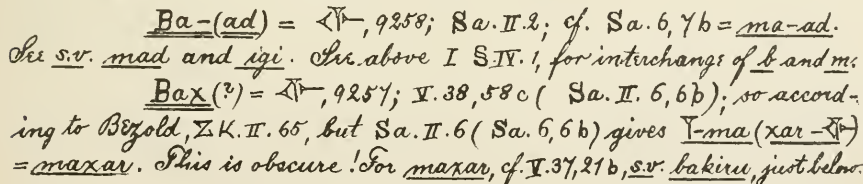 Ba-(ad) = 𒅆, 9258; Sa. II. 2; cf. Sa. 6, 7b = ma-ad.
See s.v. mad and igi. See above I § IV. 1, for interchange of b and m.
Bax (?) = 𒅆, 9257; V. 38, 58c ( Sa. II. 6, 6b); so accord-
ing to Bezold, ZK. II. 65, but Sa. II. 6 ( Sa. 6, 6b) gives Y-ma (xar - 𒅆)
= maxar. This is obscure! For maxar, cf. V. 37, 21b, s.v. bakiru, just below.